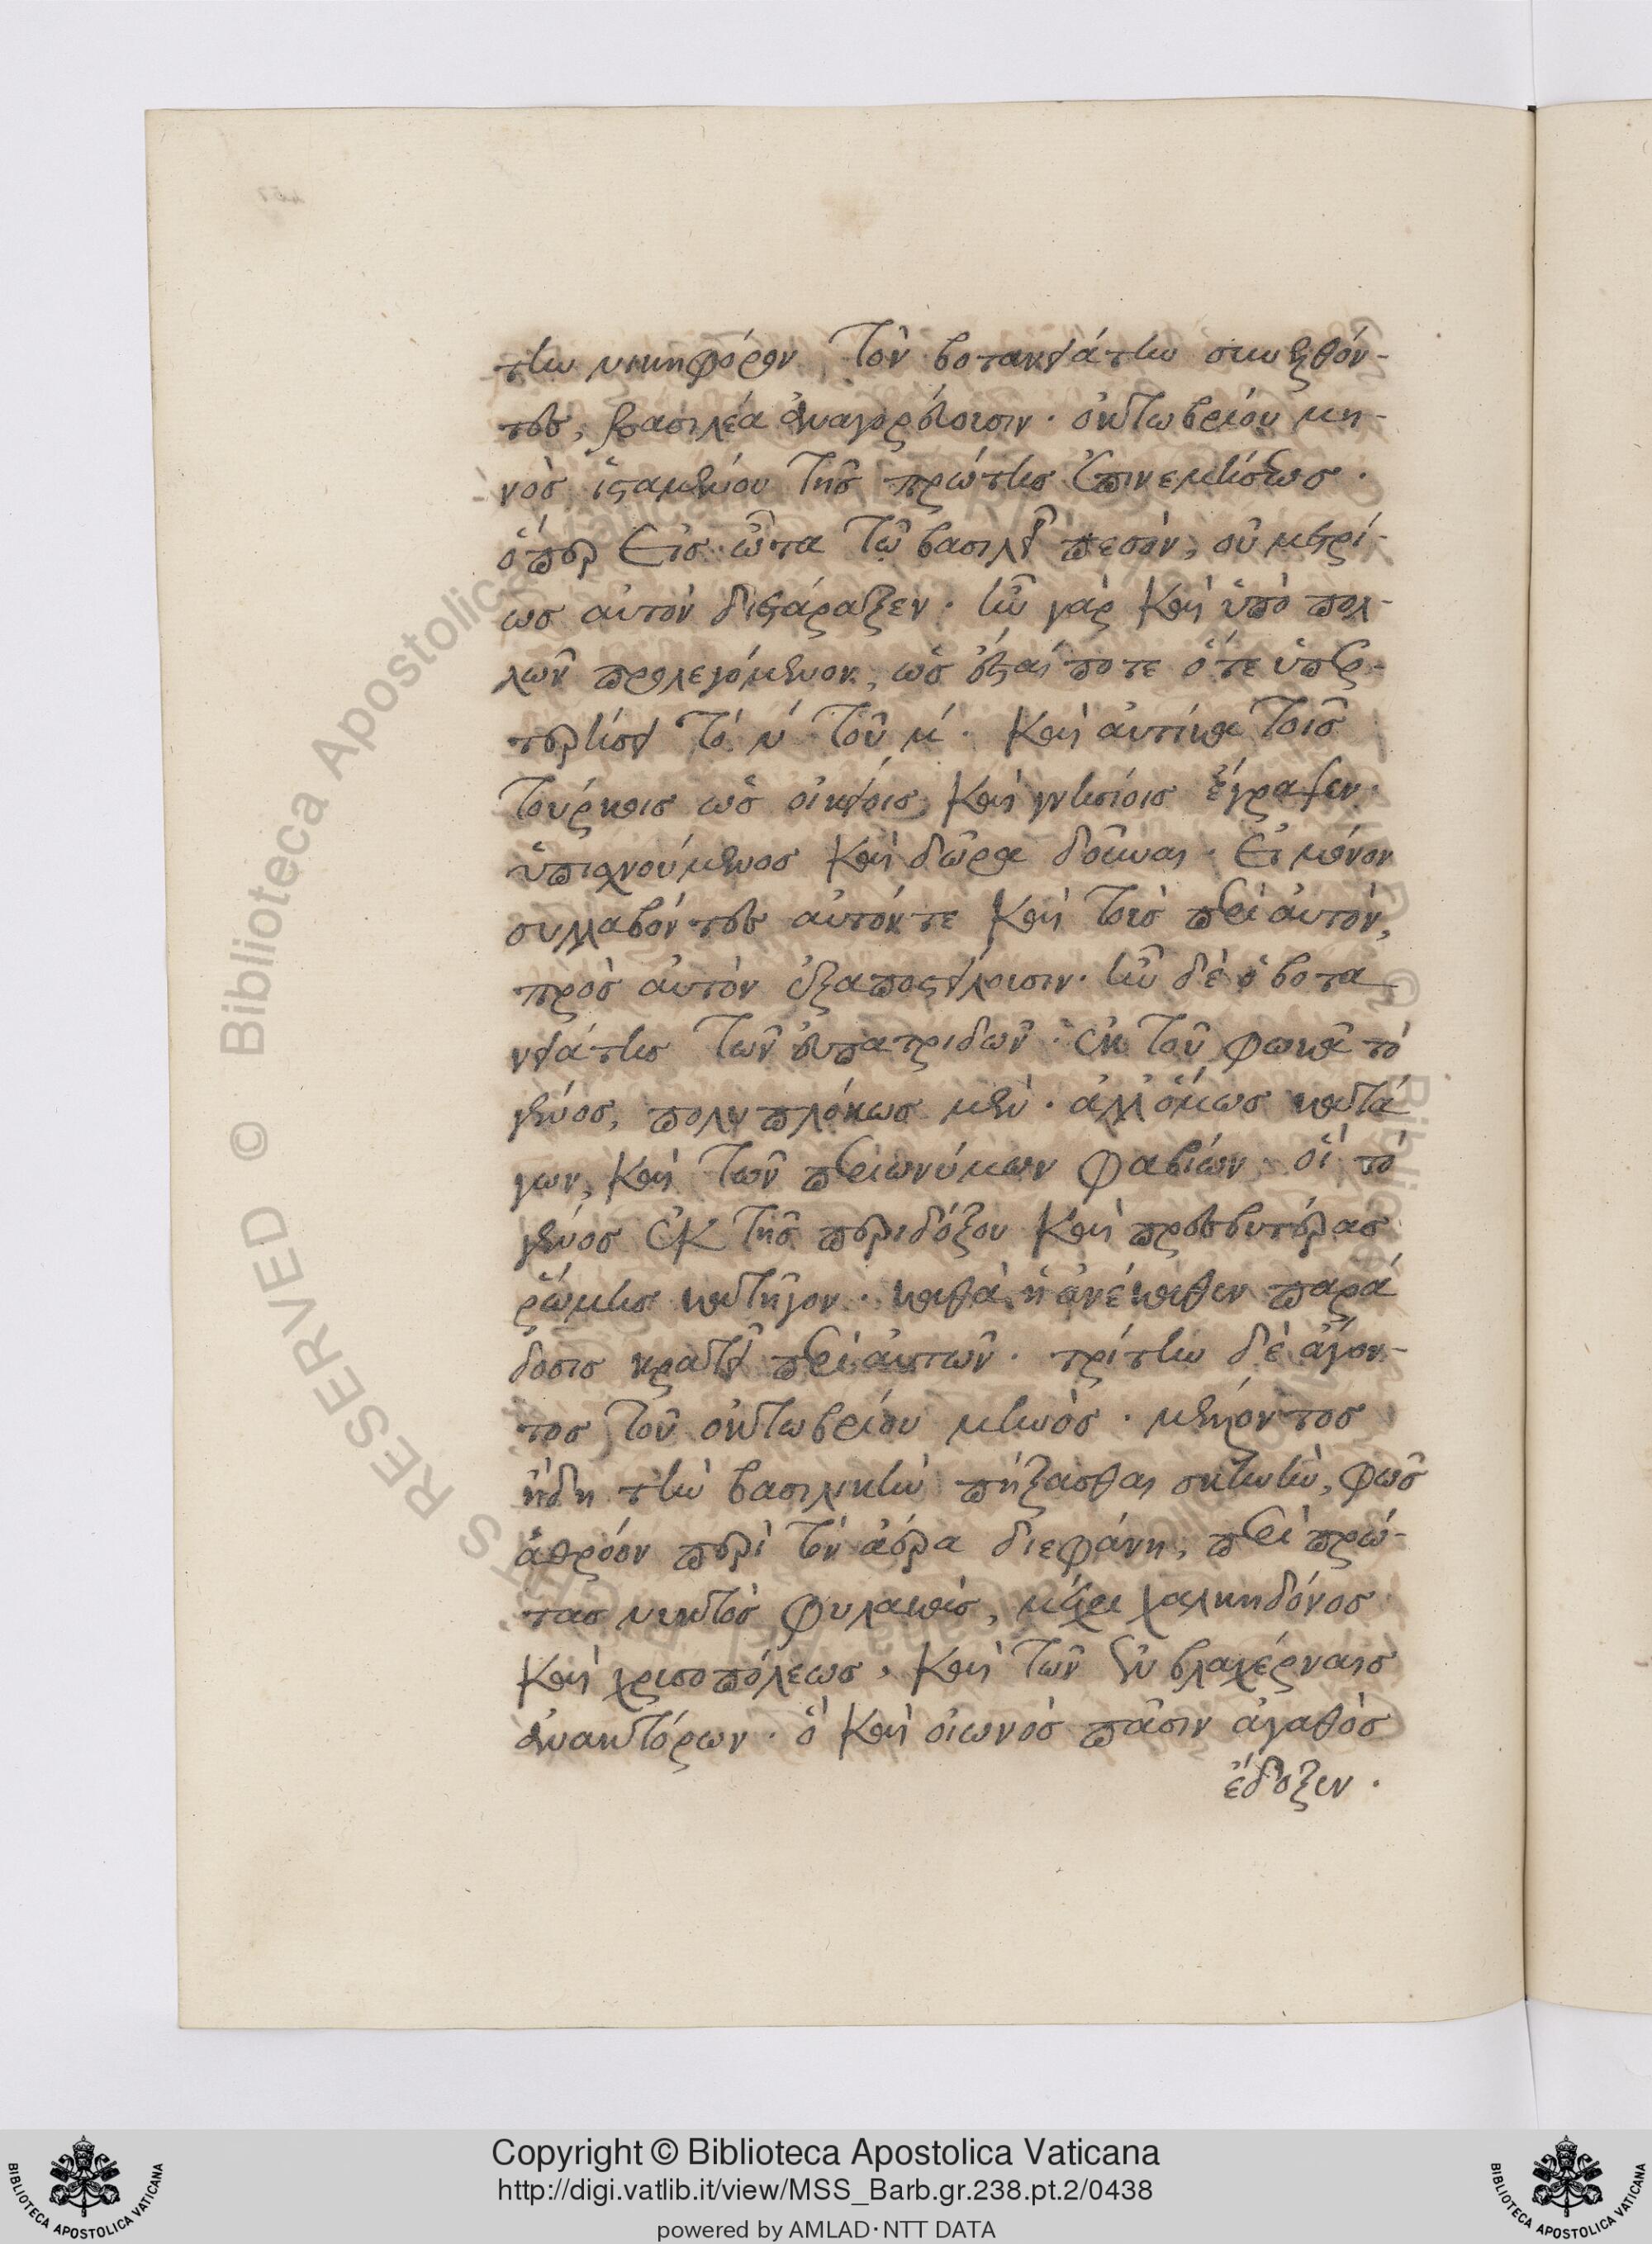 την νικηφόρον, τὸν βοτανειάτην συνελθόν-
τες, βασιλέα ἀναγορεύουσιν· ὀκτωβρίου μη-
νὸς ἱσταμένου τῆς πρώτης ἐπινεμήσεως·
ὅπερ εἰς ὦτα τῶ βασιλεῖ πεσὸν, οὐ μετρί-
ως αὐτὸν διετάραξεν· ἦν γὰρ καὶ ὑπὸ πολ-
λῶν προλεγόμενον, ὡς ἔσται ποτε ὅτε ὑπερ-
τερήσει τό ν´ τοῦ μ´· καὶ αὐτίκα τοῖς
τούρκοις ὡς οἰκείοις καὶ γνησίοις ἔγραφεν·
ὑπισχνούμενος καὶ δῶρα δοῦναι· εἰ μόνον
συλλαβόντες αὐτόν τε καὶ τοὺς περὶ αὐτὸν,
πρὸς αὐτὸν ἐξαποστείλοισιν· ἦν δὲ ὁ βοτα
νειάτης τῶν εὐπατριδῶν· ἐκ τοῦ φωκᾶ τὸ
γένος, πολυπλόκως μὲν· ἀλλ' ὅμως κατά
γων, καὶ τῶν περιωνύμων φαβίων· οἳ τὸ
γένος ἐκ τῆς περιδόξου καὶ πρεσβυτέρας
ῥώμης κατῆγον· καθὰ ἡ ἀνέκαθεν παρά
δοσις κρατεῖ περὶ αὐτῶν· τρίτην δὲ ἄγον-
τος τοῦ ὀκτωβρίου μηνὸς· μέλλοντος
ἤδη τὴν βασιλικὴν πήξασθαι σκηνὴν, φῶς
ἀθρόον περὶ τὸν ἀέρα διεφάνη, περὶ πρώ-
τας νυκτὸς φυλακὰς, μέχρι χαλκηδόνος
καὶ χρισοπόλεως, καὶ τῶν ἐν βλαχέρναις
ἀνακτόρων· ὃ καὶ οἰωνὸς πᾶσιν ἀγαθὸς
ἔδοξεν·
Copyright © Biblioteca Apostolica Vaticana
http://digi.vatlib.it/view/MSS_Barb.gr.238.pt.2/0438
powered by AMLAD·NTT DATA